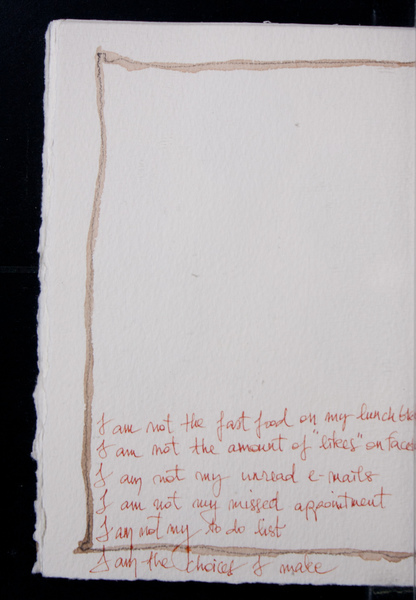 I am not the fast food on my lunch
I am not the amount of "likes" on
I am not my unread e-mails
I am not my missed appointment
I am not my to do list
I am the choices I make